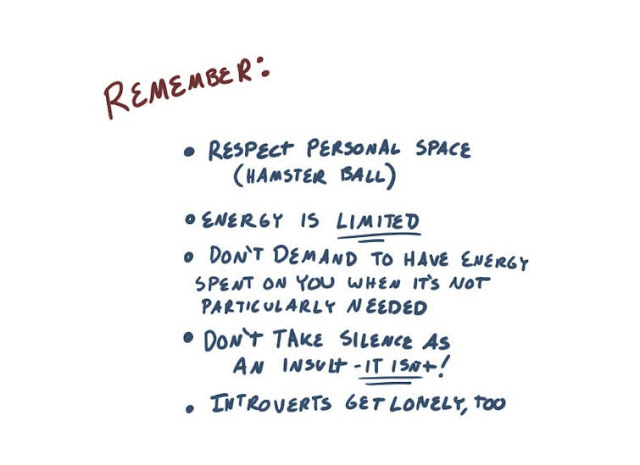 REMEMBER:
• RESPECT PERSONAL SPACE
(HAMSTER BALL)
• ENERGY IS LIMITED
• DON'T DEMAND TO HAVE ENERGY
SPENT ON YOU WHEN IT'S NOT
PARTICULARLY NEEDED
• DON'T TAKE SILENCE AS
AN INSULT - IT ISN'T!
• INTROVERTS GET LONELY, TOO